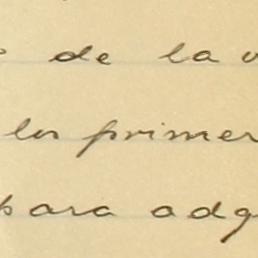 de la
los primer
para adq